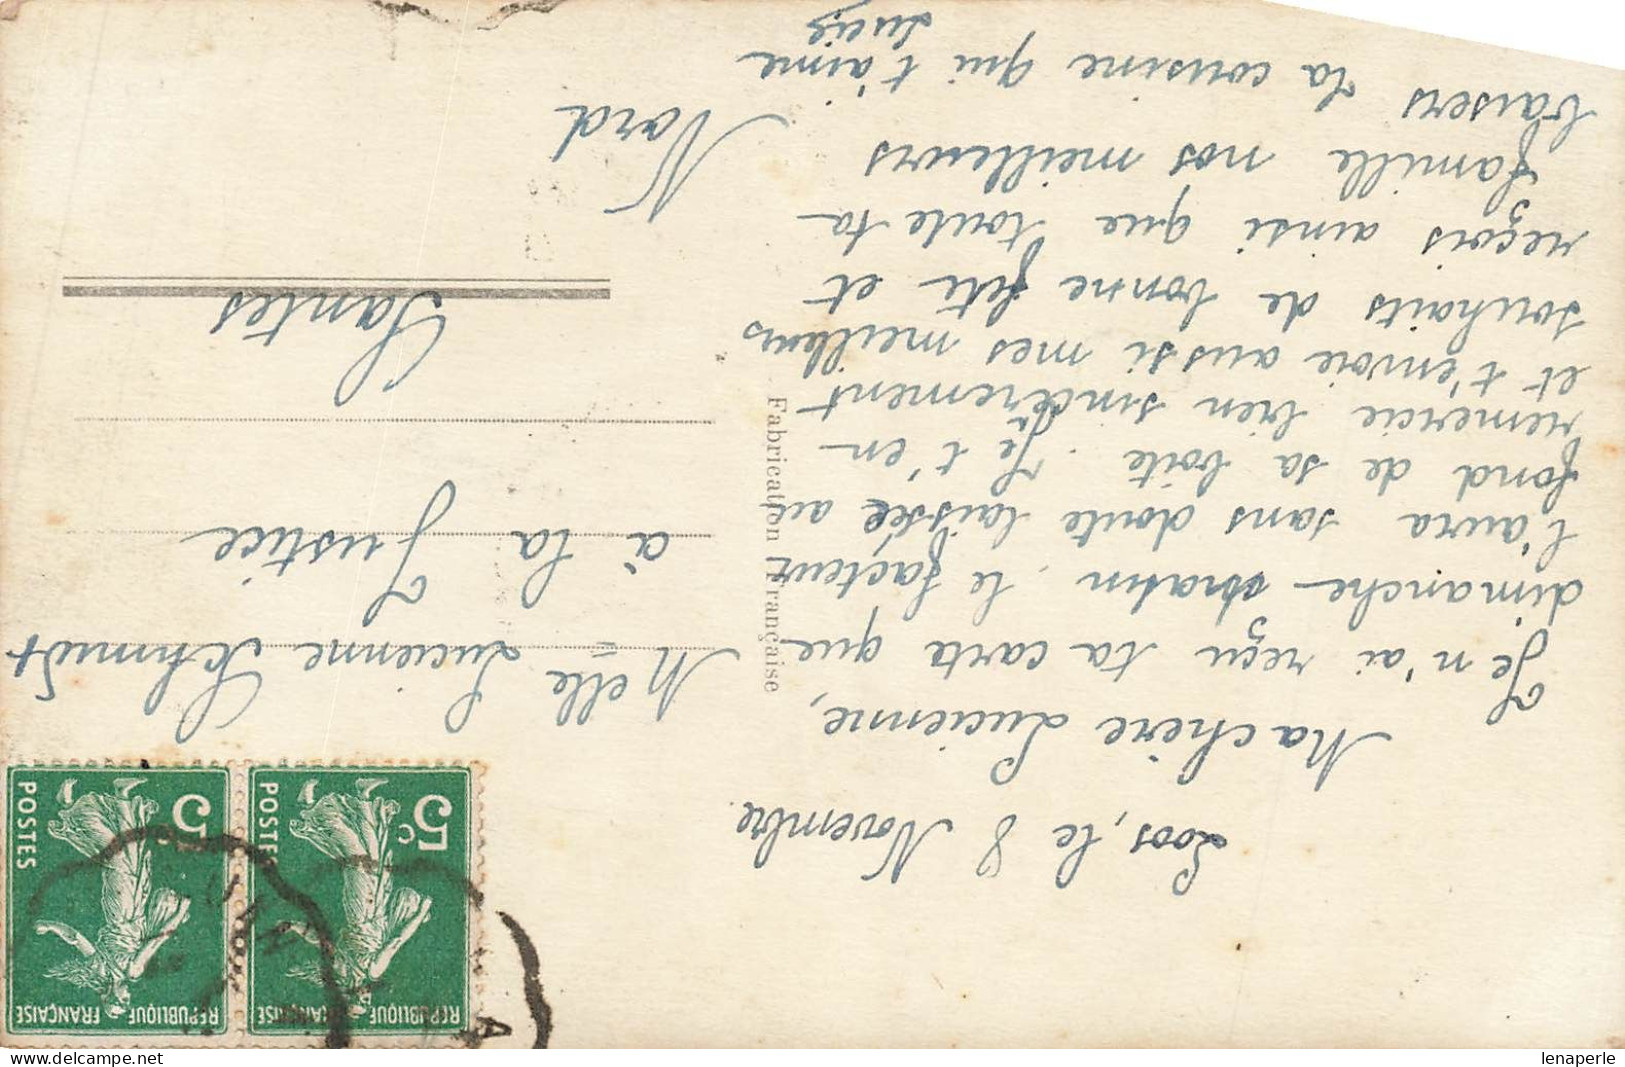 Loos, le 8 Novembre.
Ma chère Lucienne,
Je n'ai reçu ta carte que
dimanche matin. le facteur
l'aura sans doute laissée au
fond de sa boite. Je t'en
remercie bien sincèrement
et t'envoie aussi mes meilleurs
souhaits de bonne fête et
reçois ainsi que toute ta
famille nos meilleurs
baisers ta cousine qui t'aime
Lucie
Fabrication Française
RÉPUBLIQUE FRANÇAISE
5c
POSTES
RÉPUBLIQUE FRANÇAISE
5c
POSTES
Melle Lucienne Schmidt
à la Justice
Santes
Nord
lenaperle